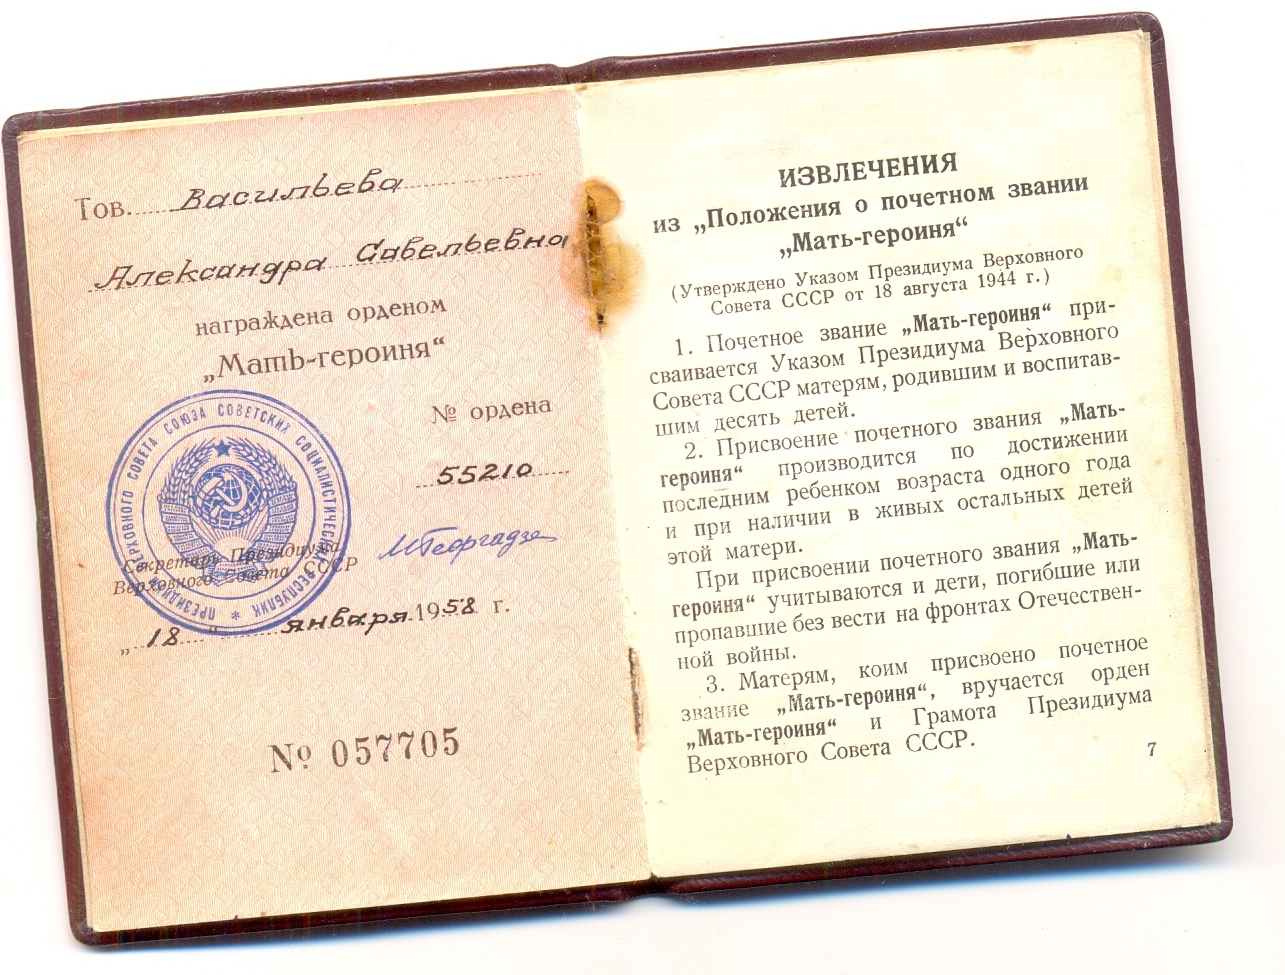 Тов. Васильева
Александра Савельевна
награждена орденом
„Мать-героиня“
№ ордена
55210
ПРЕЗИДИУМ ВЕРХОВНОГО СОВЕТА СОЮЗА СОВЕТСКИХ СОЦИАЛИСТИЧЕСКИХ РЕСПУБЛИК *
Секретарь Президиума
Верховного Совета СССР
МГеоргадзе
„18“ января 1958 г.
№ 057705
ИЗВЛЕЧЕНИЯ
из „Положения о почетном звании
„Мать-героиня“
(Утверждено Указом Президиума Верховного
Совета СССР от 18 августа 1944 г.)
1. Почетное звание „Мать-героиня“ при-
сваивается Указом Президиума Верховного
Совета СССР матерям, родившим и воспитав-
шим десять детей.
2. Присвоение почетного звания „Мать-
героиня“ производится по достижении
последним ребенком возраста одного года
и при наличии в живых остальных детей
этой матери.
При присвоении почетного звания „Мать-
героиня“ учитываются и дети, погибшие или
пропавшие без вести на фронтах Отечествен-
ной войны.
3. Матерям, коим присвоено почетное
звание „Мать-героиня“, вручается орден
„Мать-героиня“ и Грамота Президиума
Верховного Совета СССР.
7